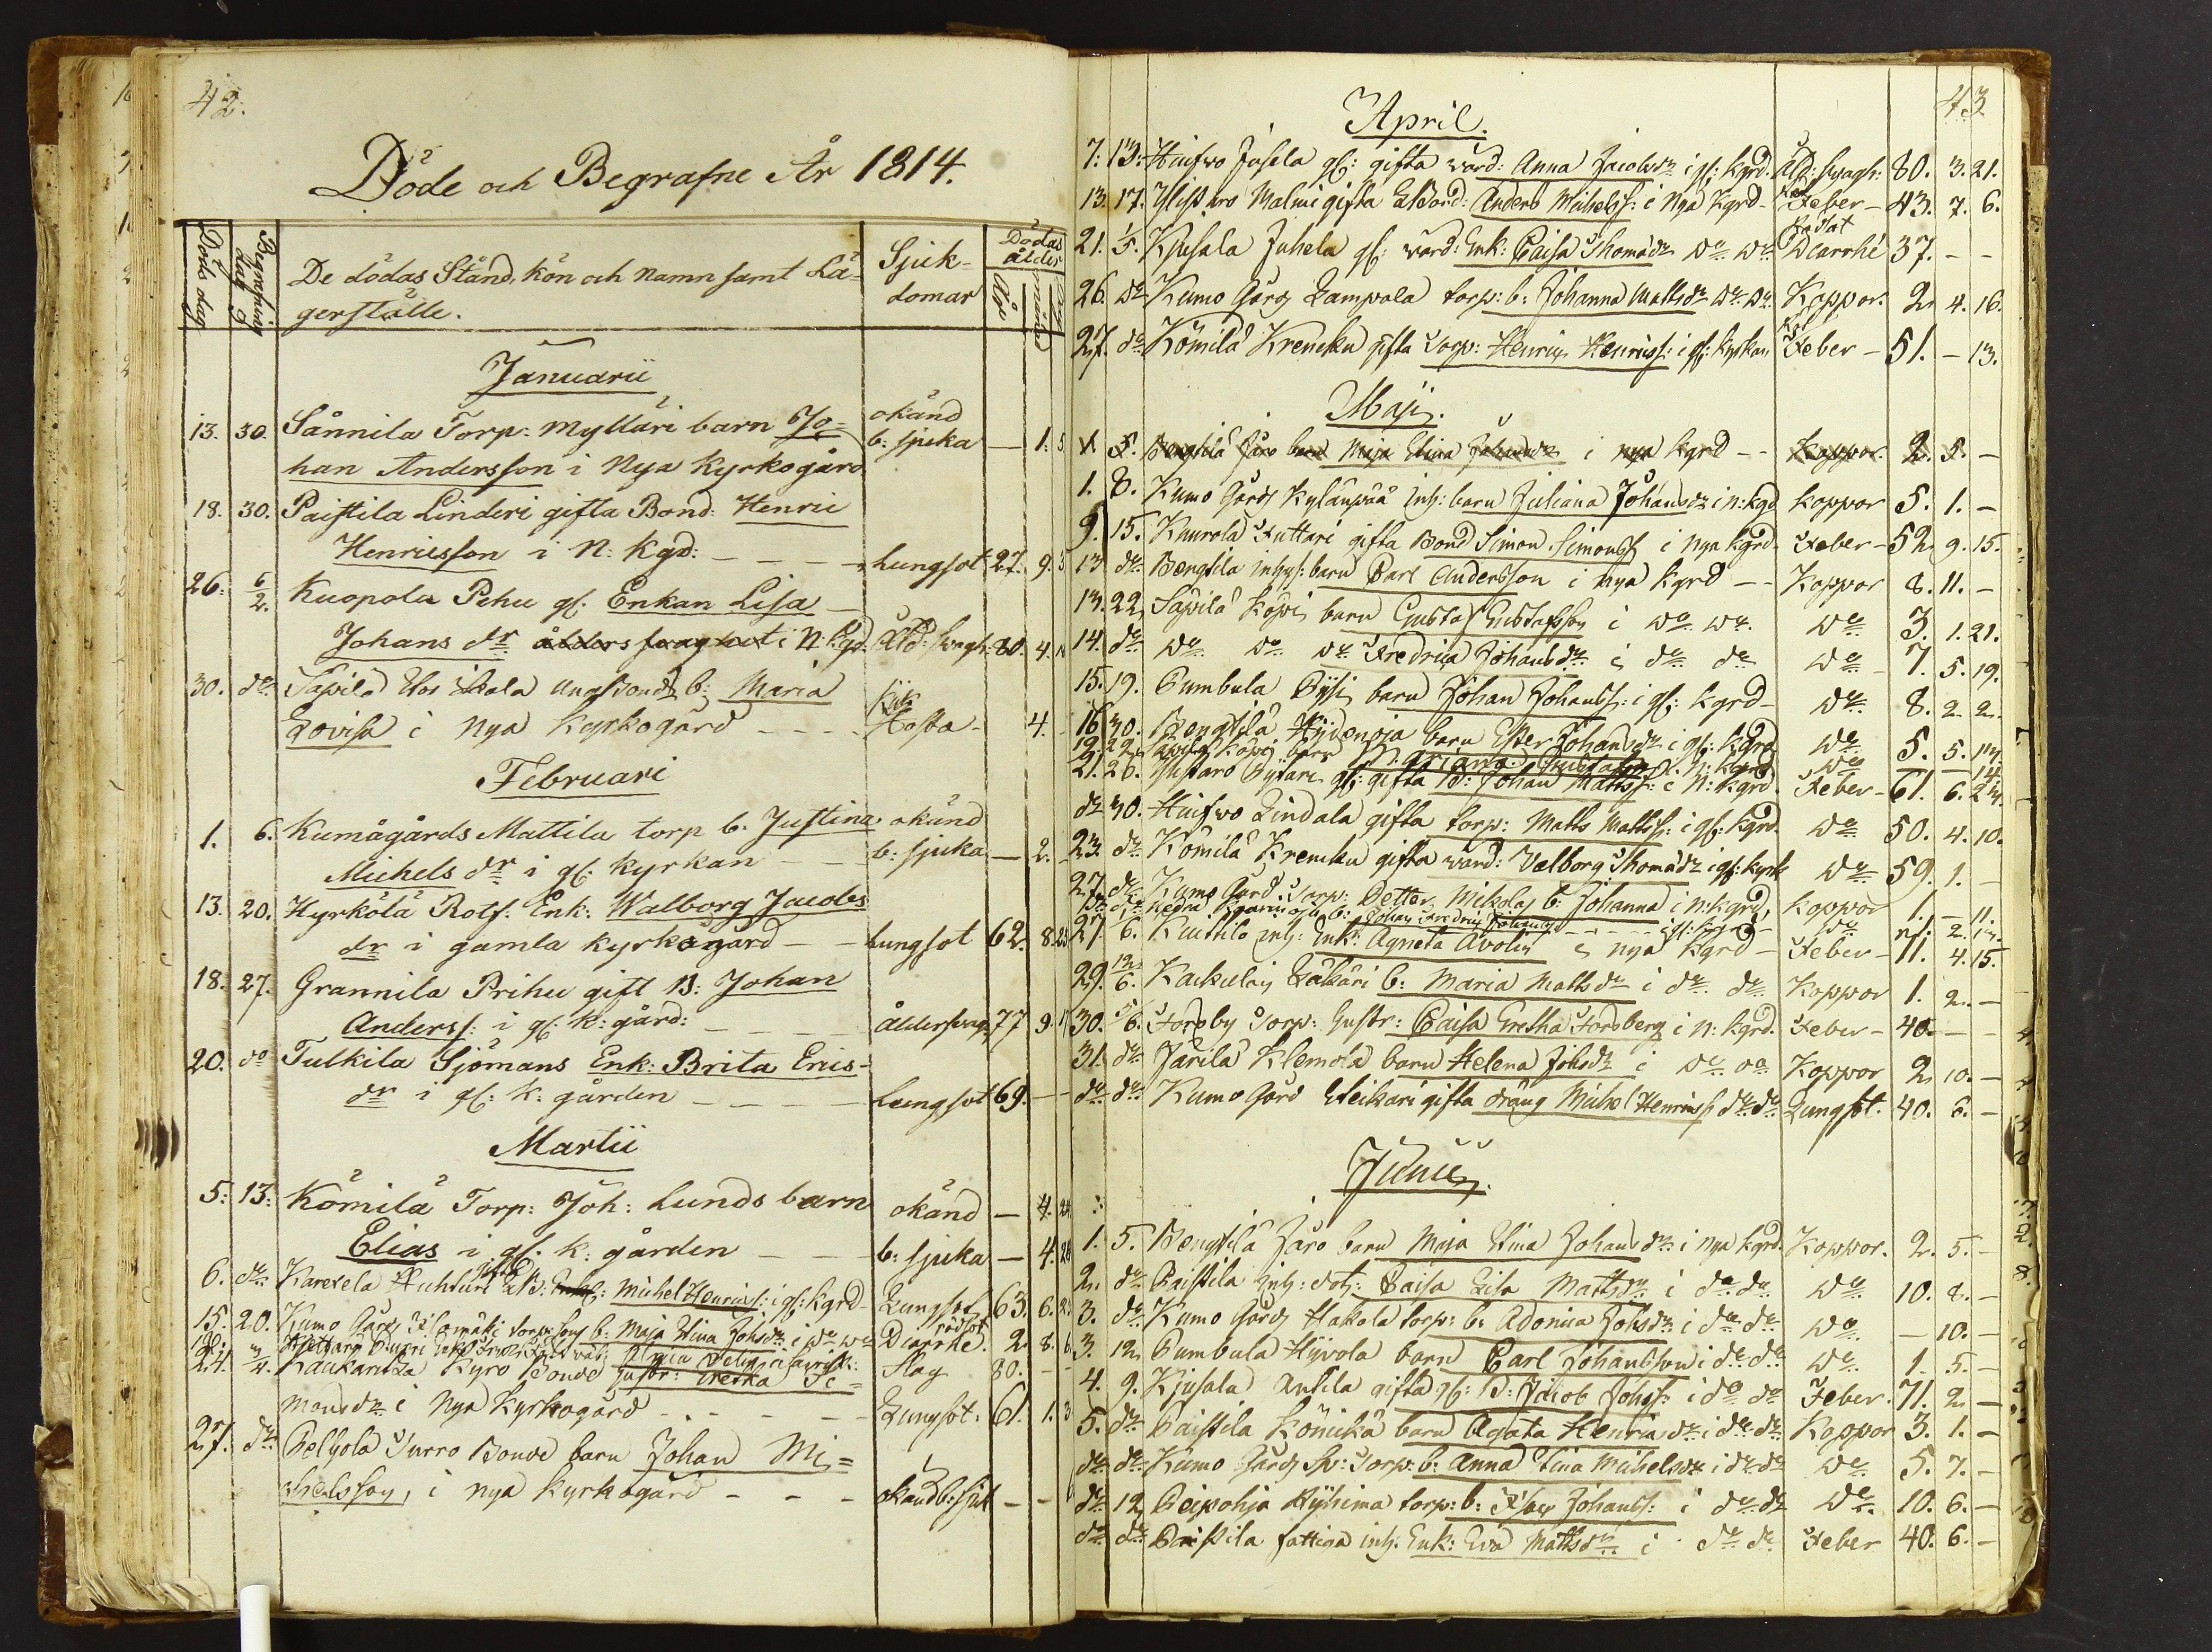 42.
Döde och Begrafne År 1814.
Döds dag
Begrafning dag
De dödas Stånd, kön och namn samt Lä-
gerställe.
Sjuk-
domar
Dödas
ålder
År
Januarii
13. 30. Sånnila Torp: Mylläri barn Jo- okänd
han Andersson i Nya Kyrkogård b: sjuka — 1. 5
18. 30. Paistila Linderi gifta Bond: Henric
Henricsson i N: Kgd: Lungsot 27. 9. 5
26. 6/2. Kuopola Pehu gl. Enkan Lisa
Johans dr ålders swaghet i N: Kgd Åld: swagh: 80. 4.
30. do Säpilä Ung Bond b: Maria Kik
Lovisa i Nya Kyrkogård Hosta 4.
Februari
1. 6. Kumågårds Mattila torp b. Justina okänd
Michels dr i gl: Kyrkan b: sjuka — 2.
13. 20. Hyrkölä Rotf. Enk: Walborg Jacobs
dr i gamla Kyrkogård Lungsot 62. 8. 23
18. 27. Grannila Prihu gift B: Johan
Anderss: i gl: K: gård: ålderswag. 77 9. 17
20. do Tulkila Sjömans Enk: Brita Erics-
dr i gl: K: gården Lungsot 69.
Martii
5: 13: Kömilä Torp: Joh: Lunds barn okänd — 4. 24
Elias i gl: K: gården b: sjuka — 4. 26
6. do Karetela Michel Henricss: i gl: Kgrd Lungsot 63. 6. 23
15. 20. Kumo Gårds torp: b: Maja Stina Johsdr i do do Diarrhé. 2. 8. 6
Slag 80.
24. 3/4. Kaukaritza Kyro Bonde hustr: Gretha Si=
monsdr i Nya Kyrkogård Lungsot. 61. 1. 3
27. do Pelhola Turro Bonde barn Johan Mi=
chelsson, i nya Kyrkogård okänd b: sjuk — —
43
April.
7. 13. Huifwo Jusela gl: gifta värd: Anna Jacobsdr i gl: Kgrd. Åld: swagh: 80. 3. 21.
13. 17. Ylistaro Malmi gifta Bond: Anders Michelss: i Nya Kgrd Feber 43. 7. 6.
21. Kjusala Juhela gl: värd: Enk: Caisa Thomasdr do do Diarrhé 37. — —
26. do Kumo Gårds Lampola torp: b: Johanna Mattsdr do do Koppor. 2. 4. 16.
27. do Kömilä Krencku gifta Torp: Henric Henricss: i gl: Kyrkan Feber 51. — 13.
Maji.
1. 5. Bengtilä Järo barn Maja Stina Johansdr i nya Kgrd Koppor. 2. 5. —
1. 8. Kumo Gårds Kylänpää inh: barn Juliana Johansdr i n: kgd Koppor 5. 1. —
9. 15. Knurola Futtari gifta Bond Simon Simonss i Nya Kgrd. Feber 52. 9. 15.
13 do Bengtila inhys: barn Carl Andersson i nya Kgrd Koppor 8. 11. —
13. 22. Säpilä Köpi barn Gustaf Gustafsson i do do do 3. 1. 21.
14. do do do do Fredrica Johansdr i do do do 7. 5. 19.
15. 19. Cumbula Pysi barn Johan Johanss: i gl: Kgrd do 8. 2. 2.
16 30. Bengtilä Hydenoja barn Ester Johansdr i gl: Kgrd do 5. 5.
19. 22. Säpilä Köpi barn Adriana Gustafsdr i N: kgrd do — — 14.
21. 26. Ylistaro Pytari gl: gifta B: Johan Mattss: i N: Kgrd. Feber 61. 6. 24.
do 30. Huifwo Lindala gifta torp: Matts Mattss: i gl: Kgrd. do 50. 4. 10.
23. do Kömilä Krencku gifta värd: Valborg Thomasdr i gl: Kyrk do 59. 1. —
27. do Kumo Gård Torp: Petter Mikolas b: Johanna i n: kgrd, Koppor 1. — 11.
27. 6. inh: Enk: Agneta Avolin i nya Kgrd Feber 11. 4. 15.
29. 12/6. Kaukulain Läkäri b: Maria Mattsdr i do do Koppor 1. 2. —
30. 5/6. Forsby Torp: hustr: Caisa Gretha Forsberg i n: kgrd. Feber 40. — —
31. do Järilä Klemola barn Helena Johsdr i do do Koppor 2. 10. —
do do Kumo Gård Heikari gifta dräng Michel Henricss do do Lungsot. 40. 6. —
Junii.
1. 5. Bengtilä Järo barn Maja Stina Johansdr i nya kgrd. Koppor. 2. 5. —
2. do Paistila inh: dotr: Caisa Lisa Mattsdr i do do do 10. 2. —
3. do Kumo Gårds Hakola torp: b: Adonica Johsdr i do do do — 10. —
3. 12. Cumbula Hyvola barn Carl Johansson i do do do 1. 5. —
4. 9. Kjusala Antila gifta gl: B: Jacob Johss: i do do Feber. 71. 2. —
5. do Paistila Könickä barn Agata Henricsdr i do do Koppor 3. 1. —
do do Kumo Gårds Torp: b: Anna Stina Michelsdr i do do do 5. 7. —
do 12. Peipohja Ryhima torp: b: Isac Johanss: i do do do 10. 6. —
do do Paistila fattiga inh: Enk: Eva Mattsdr i do do Feber 40. 6. —